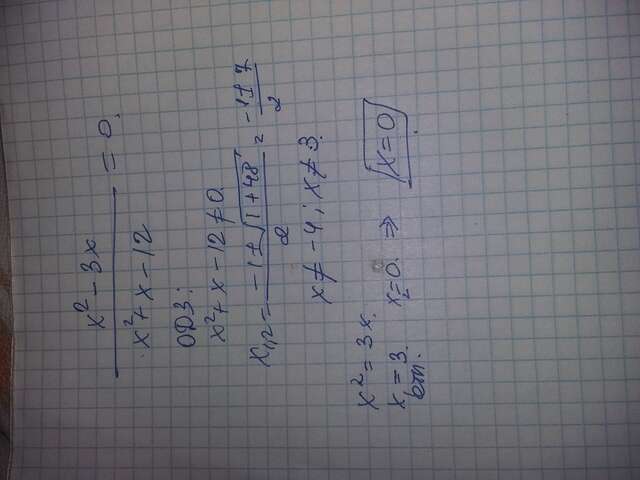 x² - 3x
———— = 0.
x² + x - 12
ОДЗ:
x² + x - 12 ≠ 0
x₁,₂ = (-1 ± √(1 + 48)) / 2 = (-1 ± 7) / 2
x ≠ -4; x ≠ 3.
x² = 3x.
x = 3. x₂ = 0. ⇒ x = 0